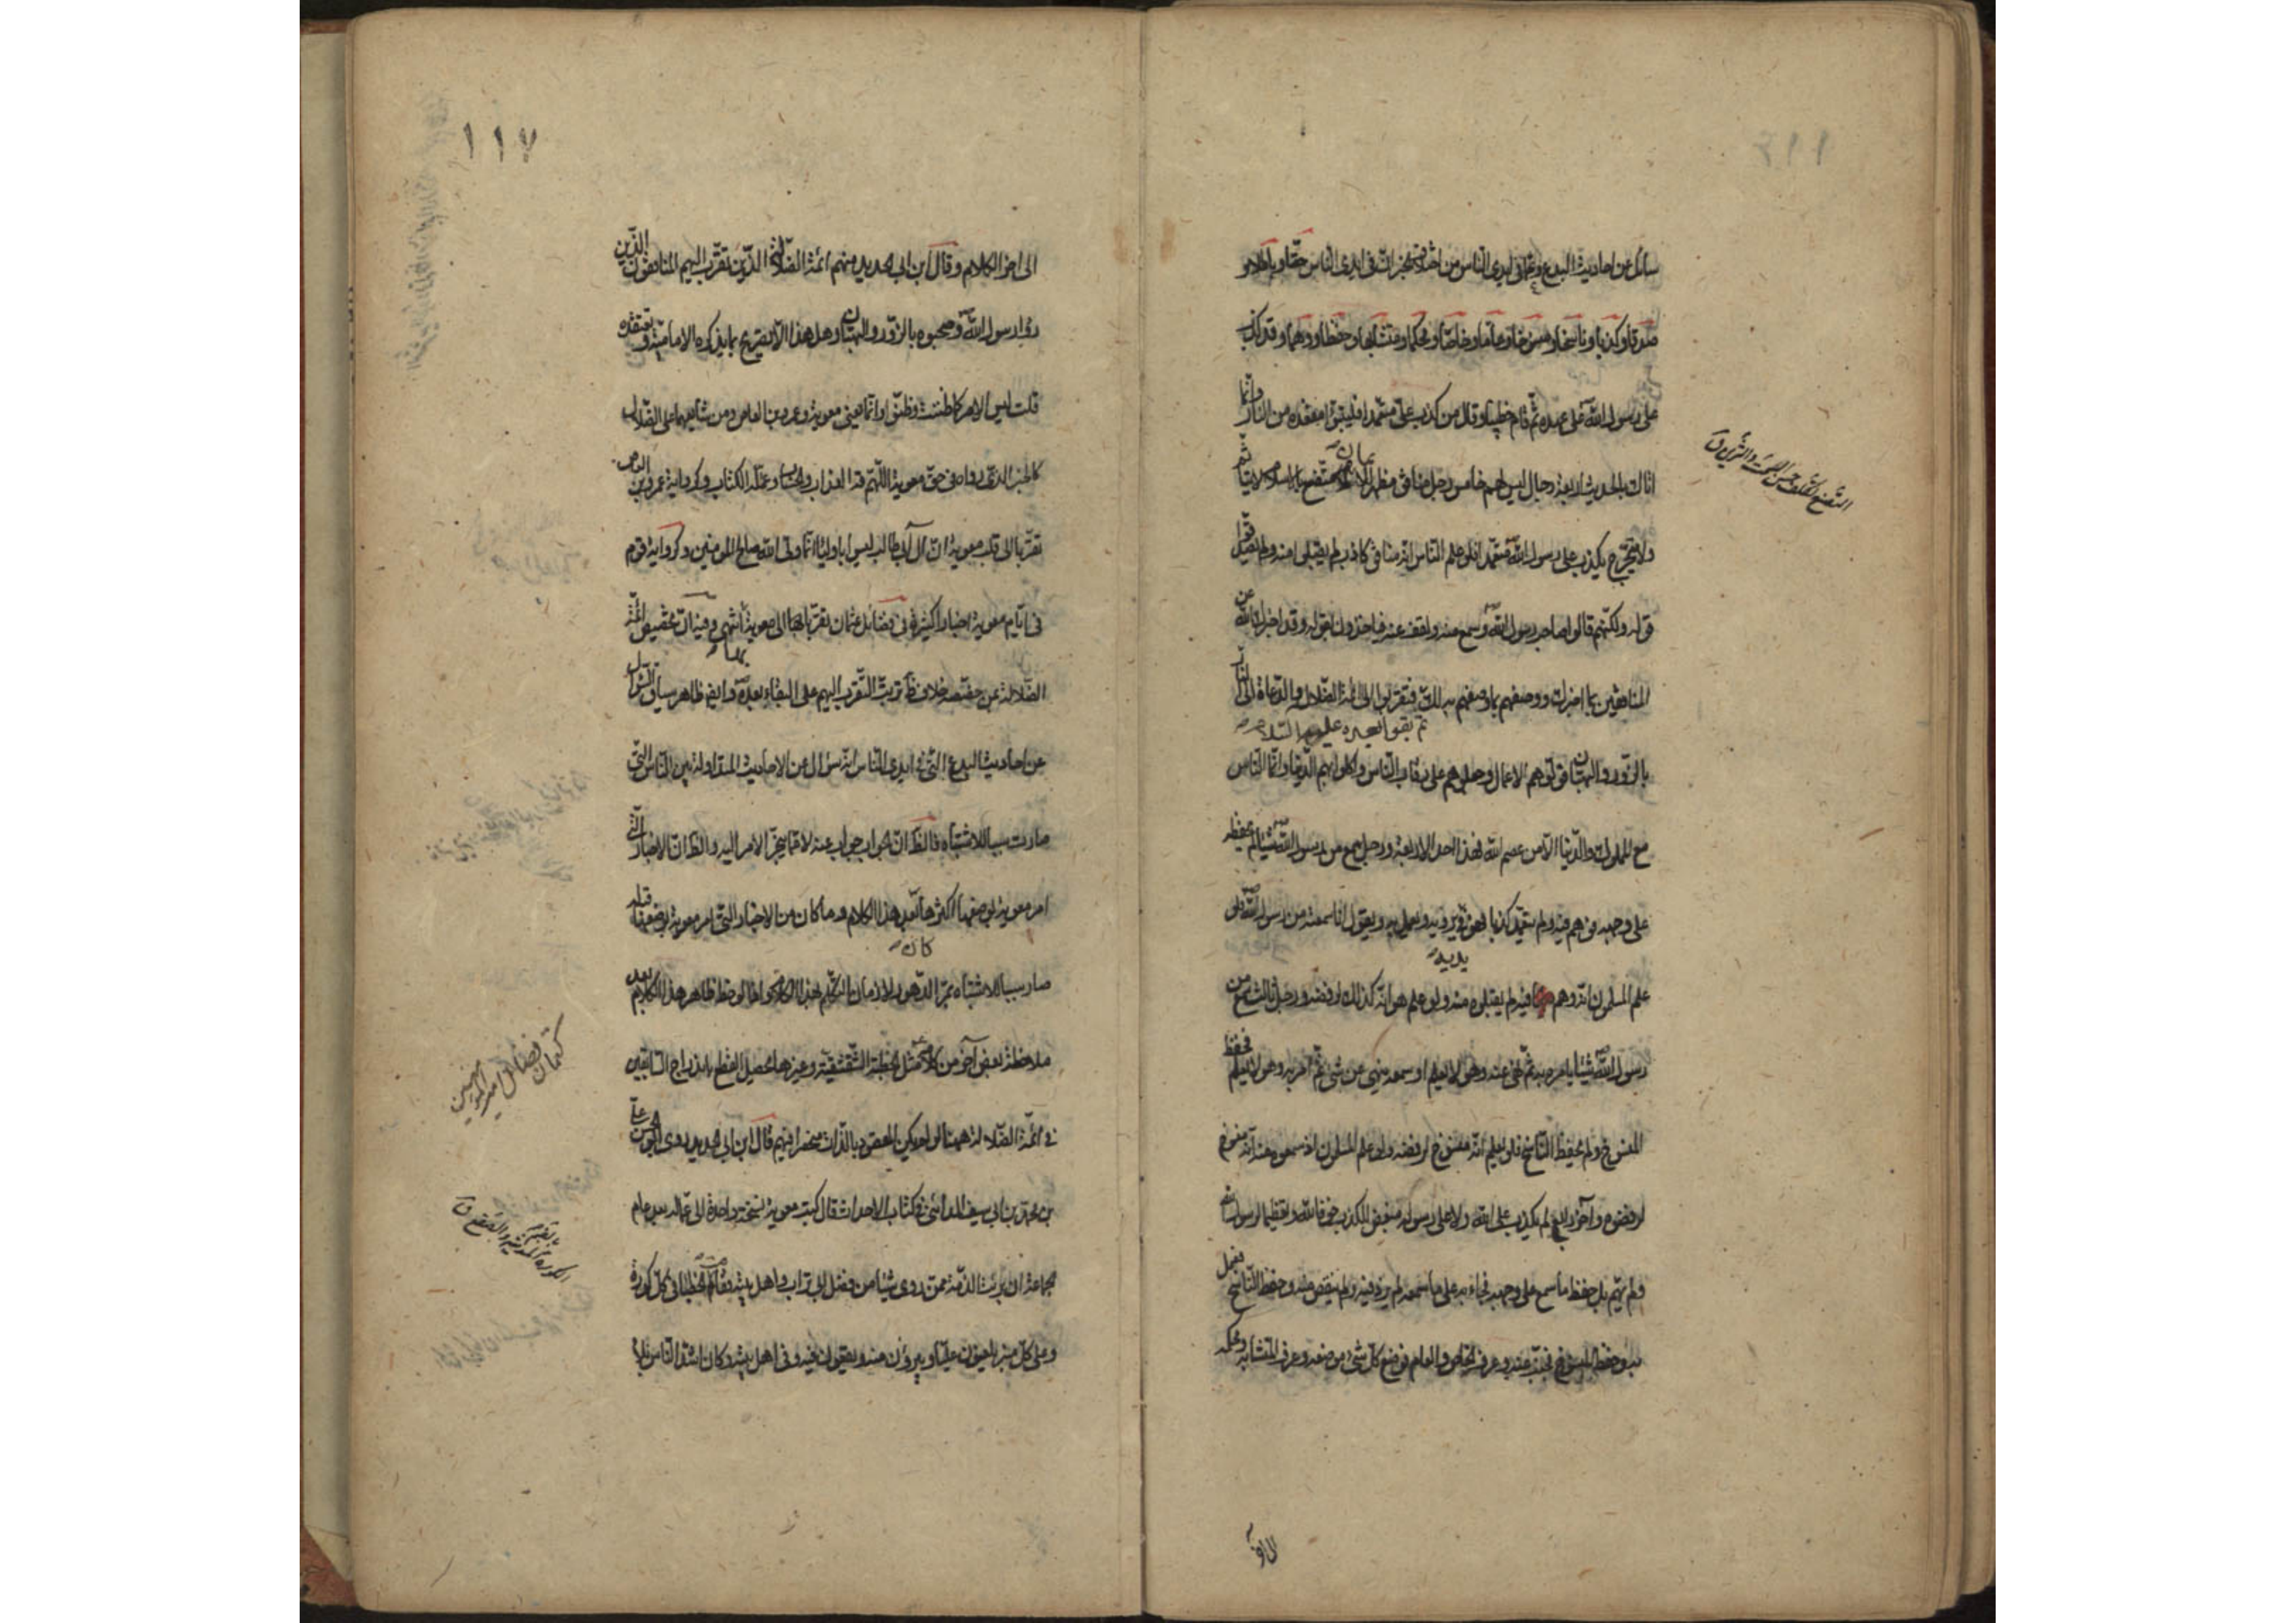 سائل عن احاديث البدع وعما في ايدي الناس من اختلاف الخبر ان في ايدي الناس حقا وباطلا و
صدقا وكذبا وناسخا ومنسوخا وعاما وخاصا ومحكما ومتشابها وحفظا ووهما وقد كذب
على رسول الله على عهده ثم قام خطيبا وقال من كذب على متعمدا فليتبوأ مقعده من النار وانما
اتاك بالحديث اربعة رجال ليس لهم خامس رجل منافق مظهر للايمان متصنع بالاسلام لا يتأثم
ولا يتحرج يكذب على رسول الله متعمدا فلو علم الناس انه منافق كاذب لم يقبلوا منه ولم يصدقوا
قوله ولكنهم قالوا صاحب رسول الله وسمع منه ولقف عنه فياخذون بقوله وقد اخبرك الله عن
المنافقين بما اخبرك ووصفهم بما وصفهم به لك فتقربوا الى ائمة الضلال والدعاة الى النار
ثم بقوا بعده عليه السلام
بالزور والبهتان فولوهم الاعمال وحملوهم على رقاب الناس واكلوا بهم الدنيا وانما الناس
مع الملوك والدنيا الا من عصم الله فهذا احد الاربعة ورجل سمع من رسول الله شيئا لم يحفظه
على وجهه فوهم فيه ولم يتعمد كذبا فهو في يديه يرويه ويعمل به ويقول انا سمعته من رسول الله فلو
علم المسلمون انه وهم فيه لم يقبلوه منه ولو علم هو انه كذلك لرفضه ورجل ثالث سمع من
رسول الله شيئا يامر به ثم نهى عنه وهو لا يعلم او سمعه ينهى عن شئ ثم امر به وهو لا يعلم فحفظ
المنسوخ ولم يحفظ الناسخ فلو يعلم انه منسوخ لرفضه ولو علم المسلمون اذ سمعوه منه انه منسوخ
لرفضوه وآخر رابع لم يكذب على الله ولا على رسوله مبغض للكذب خوفا لله وتعظيما لرسول الله
ولم يهم بل حفظ ما سمع على وجهه فجاء به على ما سمعه لم يزد فيه ولم ينقص منه وحفظ الناسخ فعمل
به وحفظ المنسوخ فجنب عنه وعرف الخاص والعام فوضع كل شئ موضعه وعرف المتشابه ومحكمه
التصنع تكلف حسن السمت والتزين ق
١١٧
الى اخر الكلام وقال ابن ابي الحديد منهم ائمة الضلالة الذين تقرب اليهم المنافقون الذين
رأوا رسول الله وصحبوه بالزور والبهتان وهل هذا الا تصريح بما يذكره الامامية وتعتقده
قلت ليس الامر كما ظننت وظنوا وانما يعني معوية وعمرو بن العاص ومن شايعهما على الضلال
كالخبر الذي رواه في حق معوية اللهم قه العذاب والحساب وعلمه الكتاب وكرواية عمرو بن العاص
تقربا الى قلب معوية ان آل ابي طالب ليسوا باولياء انما وليي الله وصالح المؤمنين وكرواية قوم
في ايام معوية اخبارا كثيرة في فضائل عثمان تقربا بها الى معوية انتهى وفيه ان تخصيص ائمة
الضلالة بمن خصصه خلاف ترتب التقرب اليهم على البقاء بعده وايضا ظاهر سياق السؤال
عن احاديث البدع التي في ايدي الناس انه سؤال عن الاحاديث المتداولة بين الناس التي
صارت سببا للاشتباه فالظ ان الجواب جواب عنه لا عما ينجر الامر اليه والظ ان الاخبار التي
امر معوية بوضعها اكثرها بعد هذا الكلام وما كان من الاخبار التي امر معوية بوضعها قبله
صار سببا للاشتباه بمر الدهور لا زمان التكلم بهذا الكلام كما لو حظ ظاهر هذا الكلام بعد
ملاحظة بعض آخر من كلامه مثل الخطبة الشقشقية وغيرها يحصل القطع باندراج السابقين
في ائمة الضلالة ههنا لو لم يكن المقصود بالذات منحصرا فيهم قال ابن ابي الحديد روى ابو الحسن علي
بن محمد بن ابي سيف المدائني في كتاب الاحداث قال كتب معوية نسخة واحدة الى عماله بعد عام
الجماعة ان برئت الذمة ممن روى شيئا من فضل ابي تراب واهل بيته فقام الخطباء في كل كورة
وعلى كل منبر يلعنون عليا ويبرؤن منه ويقولون فيه وفي اهل بيته وكان اشد الناس بلاء
كتمان فضائل امير المؤمنين